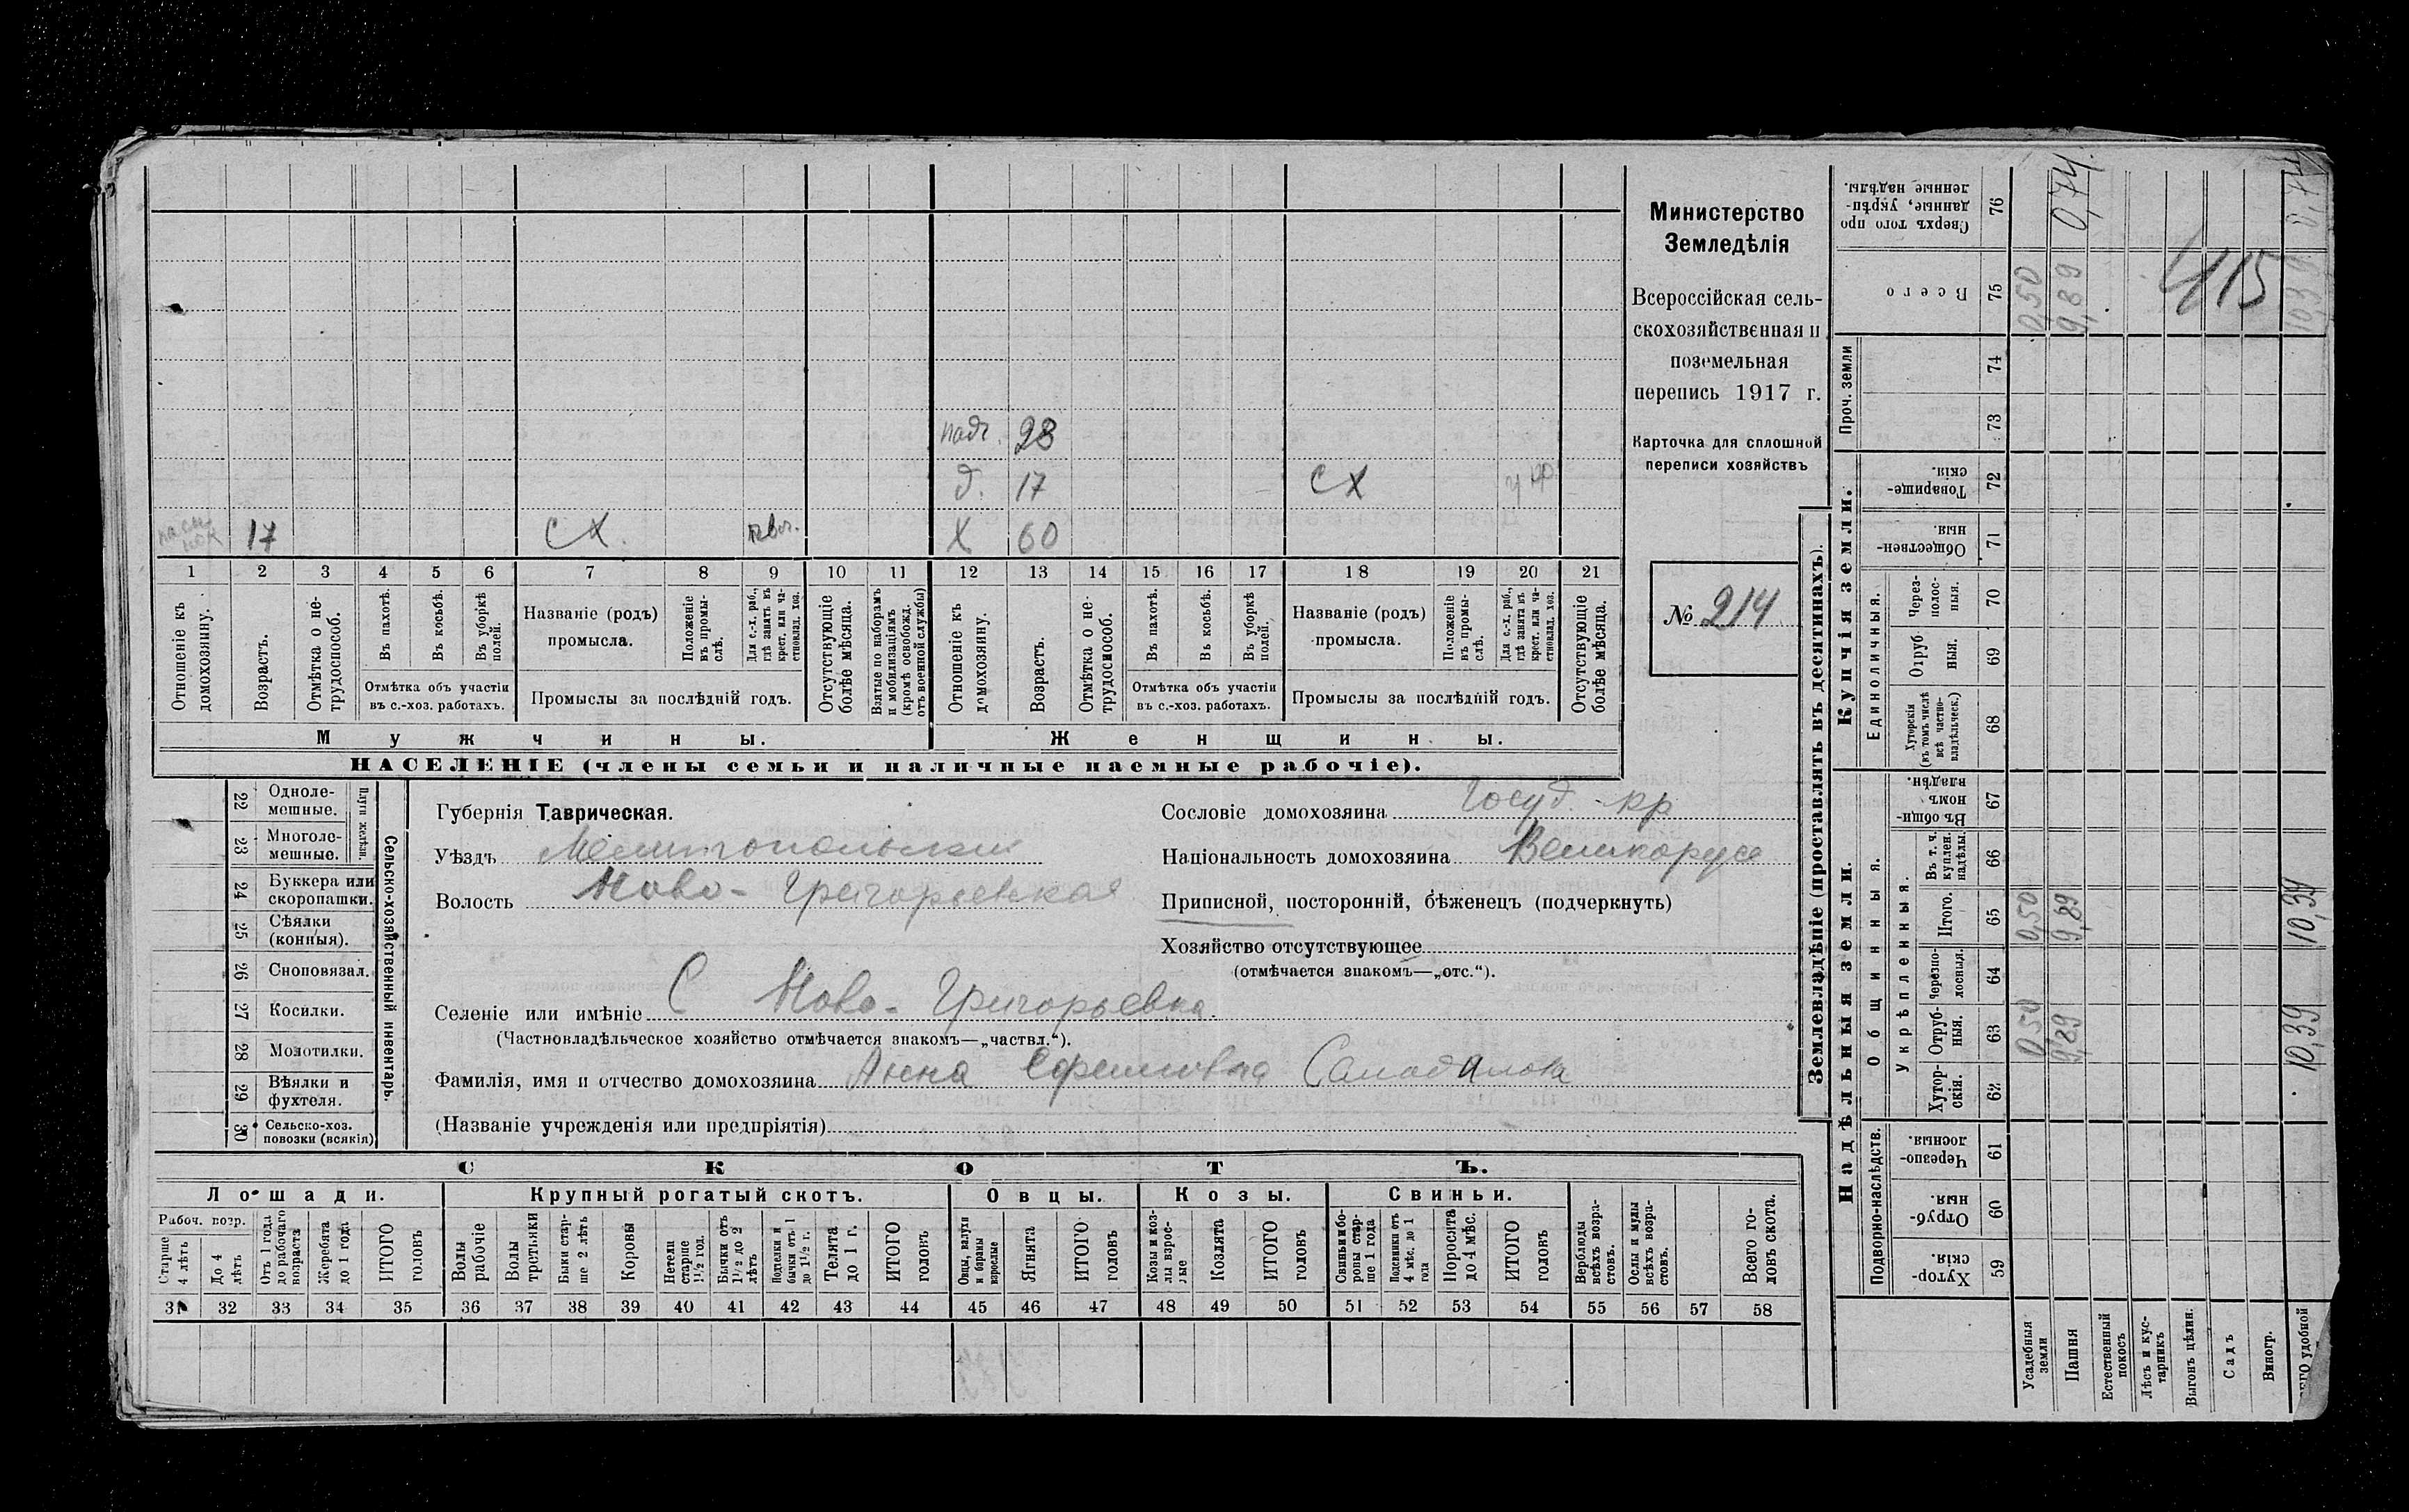 Министерство
Земледѣлія
Всероссійская сель-
скохозяйственная и
поземельная
перепись 1917 г.
Карточка для сплошной
переписи хозяйствъ
№ 214
надч. 28
д. 17 СХ
17 СХ. Х 60
1 2 3 4 5 6 7 8 9 10 11 12 13 14 15 16 17 18 19 20 21
Отношеніе къ домохозяину.
Возрастъ.
Отмѣтка о не-трудоспособ.
Въ пахотѣ.
Въ косьбѣ.
Въ уборкѣ полей.
Отмѣтка объ участіи
въ с.-хоз. работахъ.
Названіе (родъ)
промысла.
Положеніе въ промы-слѣ.
Для с.-х. раб., гдѣ занятъ въ крест. или ча-стновлад. хоз.
Промыслы за послѣдній годъ.
Отсутствующіе болѣе мѣсяца.
Взятые по наборамъ и мобилизаціямъ (кромѣ освобожд. отъ военной службы)
Отношеніе къ домохозяину.
Возрастъ.
Отмѣтка о не-трудоспособ.
Въ пахотѣ.
Въ косьбѣ.
Въ уборкѣ полей.
Отмѣтка объ участіи
въ с.-хоз. работахъ.
Названіе (родъ)
промысла.
Положеніе въ промы-слѣ.
Для с.-х. раб., гдѣ занята въ крест. или ча-стновлад. хоз.
Промыслы за послѣдній годъ.
Отсутствующіе болѣе мѣсяца.
Мужчины. Женщины.
НАСЕЛЕНІЕ (члены семьи и наличные наемные рабочіе).
Сельско-хозяйственный инвентарь.
Плуги желѣзн.
22 Одноле-мешные.
23 Многоле-мешные.
24 Буккера или скоропашки.
25 Сѣялки (конныя).
26 Сноповязал.
27 Косилки.
28 Молотилки.
29 Вѣялки и фухтеля.
30 Сельско-хоз. повозки (всякія)
Губернія Таврическая.
Уѣздъ Мелитопольский
Волость Ново-Григорьевская
Селеніе или имѣніе С Ново-Григорьевка.
(Частновладѣльческое хозяйство отмѣчается знакомъ—„частвл.“).
Фамилія, имя и отчество домохозяина Анна Ефимовна
(Названіе учрежденія или предпріятія)
Сословіе домохозяина Госуд. кр
Національность домохозяина Великорусс
Приписной, посторонній, бѣженецъ (подчеркнуть)
Хозяйство отсутствующее
(отмѣчается знакомъ—„отс.“).
СКОТЪ.
Лошади. Крупный рогатый скотъ. Овцы. Козы. Свиньи.
Рабоч. возр.
Старше 4 лѣтъ
До 4 лѣтъ
Отъ 1 года до рабочаго возраста
Жеребята до 1 года
ИТОГО головъ
Волы рабочіе
Волы третьяки
Быки стар-ше 2 лѣтъ
Коровы
Нетели старше 1½ год.
Бычки отъ 1½ до 2 лѣтъ
Подтелки и бычки отъ 1 до 1½ г.
Телята до 1 г.
ИТОГО головъ
Овцы, валухи и бараны взрослые
Ягнята
ИТОГО головъ
Козы и коз-лы взрос-лые
Козлята
ИТОГО головъ
Свиньи и бо-ровы стар-ше 1 года
Подсвинки отъ 4 мѣс. до 1 года
Поросята до 4 мѣс.
ИТОГО головъ
Верблюды всѣхъ возра-стовъ.
Ослы и мулы всѣхъ возра-стовъ.
Всего го-ловъ скота.
31 32 33 34 35 36 37 38 39 40 41 42 43 44 45 46 47 48 49 50 51 52 53 54 55 56 57 58
Землевладѣніе (проставлять въ десятинахъ).
Надѣльныя земли. Купчія земли. Проч. земли
Подворно-наслѣдств.
Общинныя.
Укрѣпленныя.
Единоличныя.
Хутор-скія. 59
Отруб-ныя. 60
Черезпо-лосныя. 61
Хутор-скія. 62
Отруб-ныя. 63 0,50 9,89 10,39
Черезпо-лосныя. 64
Итого. 65 0,50 9,89 10,39
Въ т. ч. куплен. надѣлы. 66
Въ общи-номъ владѣн. 67
Хуторскія (въ томъ числѣ всѣ частно-владѣльческ.) 68
Отруб-ныя. 69
Через-полос-ныя. 70
Обществен-ныя. 71
Товарище-скія. 72
73
74
Всего 75 0,50 9,89 10,39
Сверхъ того про-данные, укрѣп-ленные надѣлы. 76 0,74 0,74
415
Усадебныя земли
Пашня
Естественный покосъ
Лѣсъ и кус-тарникъ
Выгонъ цѣлин.
Садъ
Виногр.
удобной